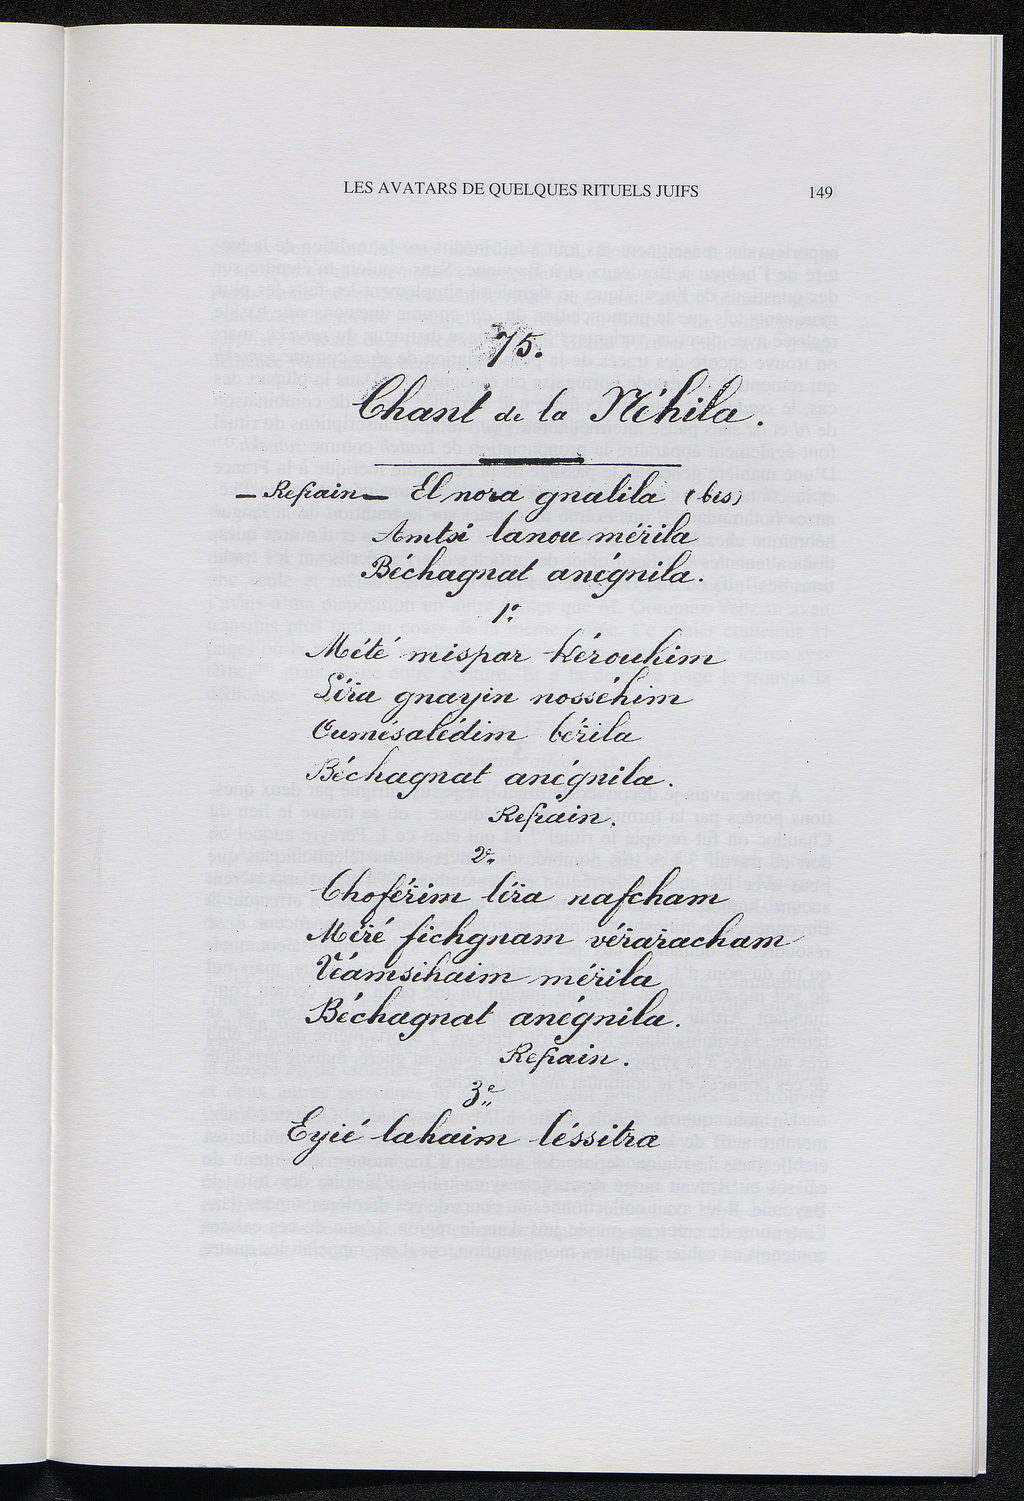 LES AVATARS DE QUELQUES RITUELS JUIFS 149
75.
Chant de la Néhila.
— Refrain — El nora gnalila (bis)
Amtsi lanou mérila
Béchagnat anégnila.
1º
Mété mispar kéroukim
Léra gnayin nossékim
Oumésalédim bérila
Béchagnat anégnila.
Refrain.
2e
Choférim léra nafcham
Méré fichgnam véraracham
Véamsihaim mérila
Béchagnat anégnila.
Refrain.
3e
Eyié lahaim léssitra